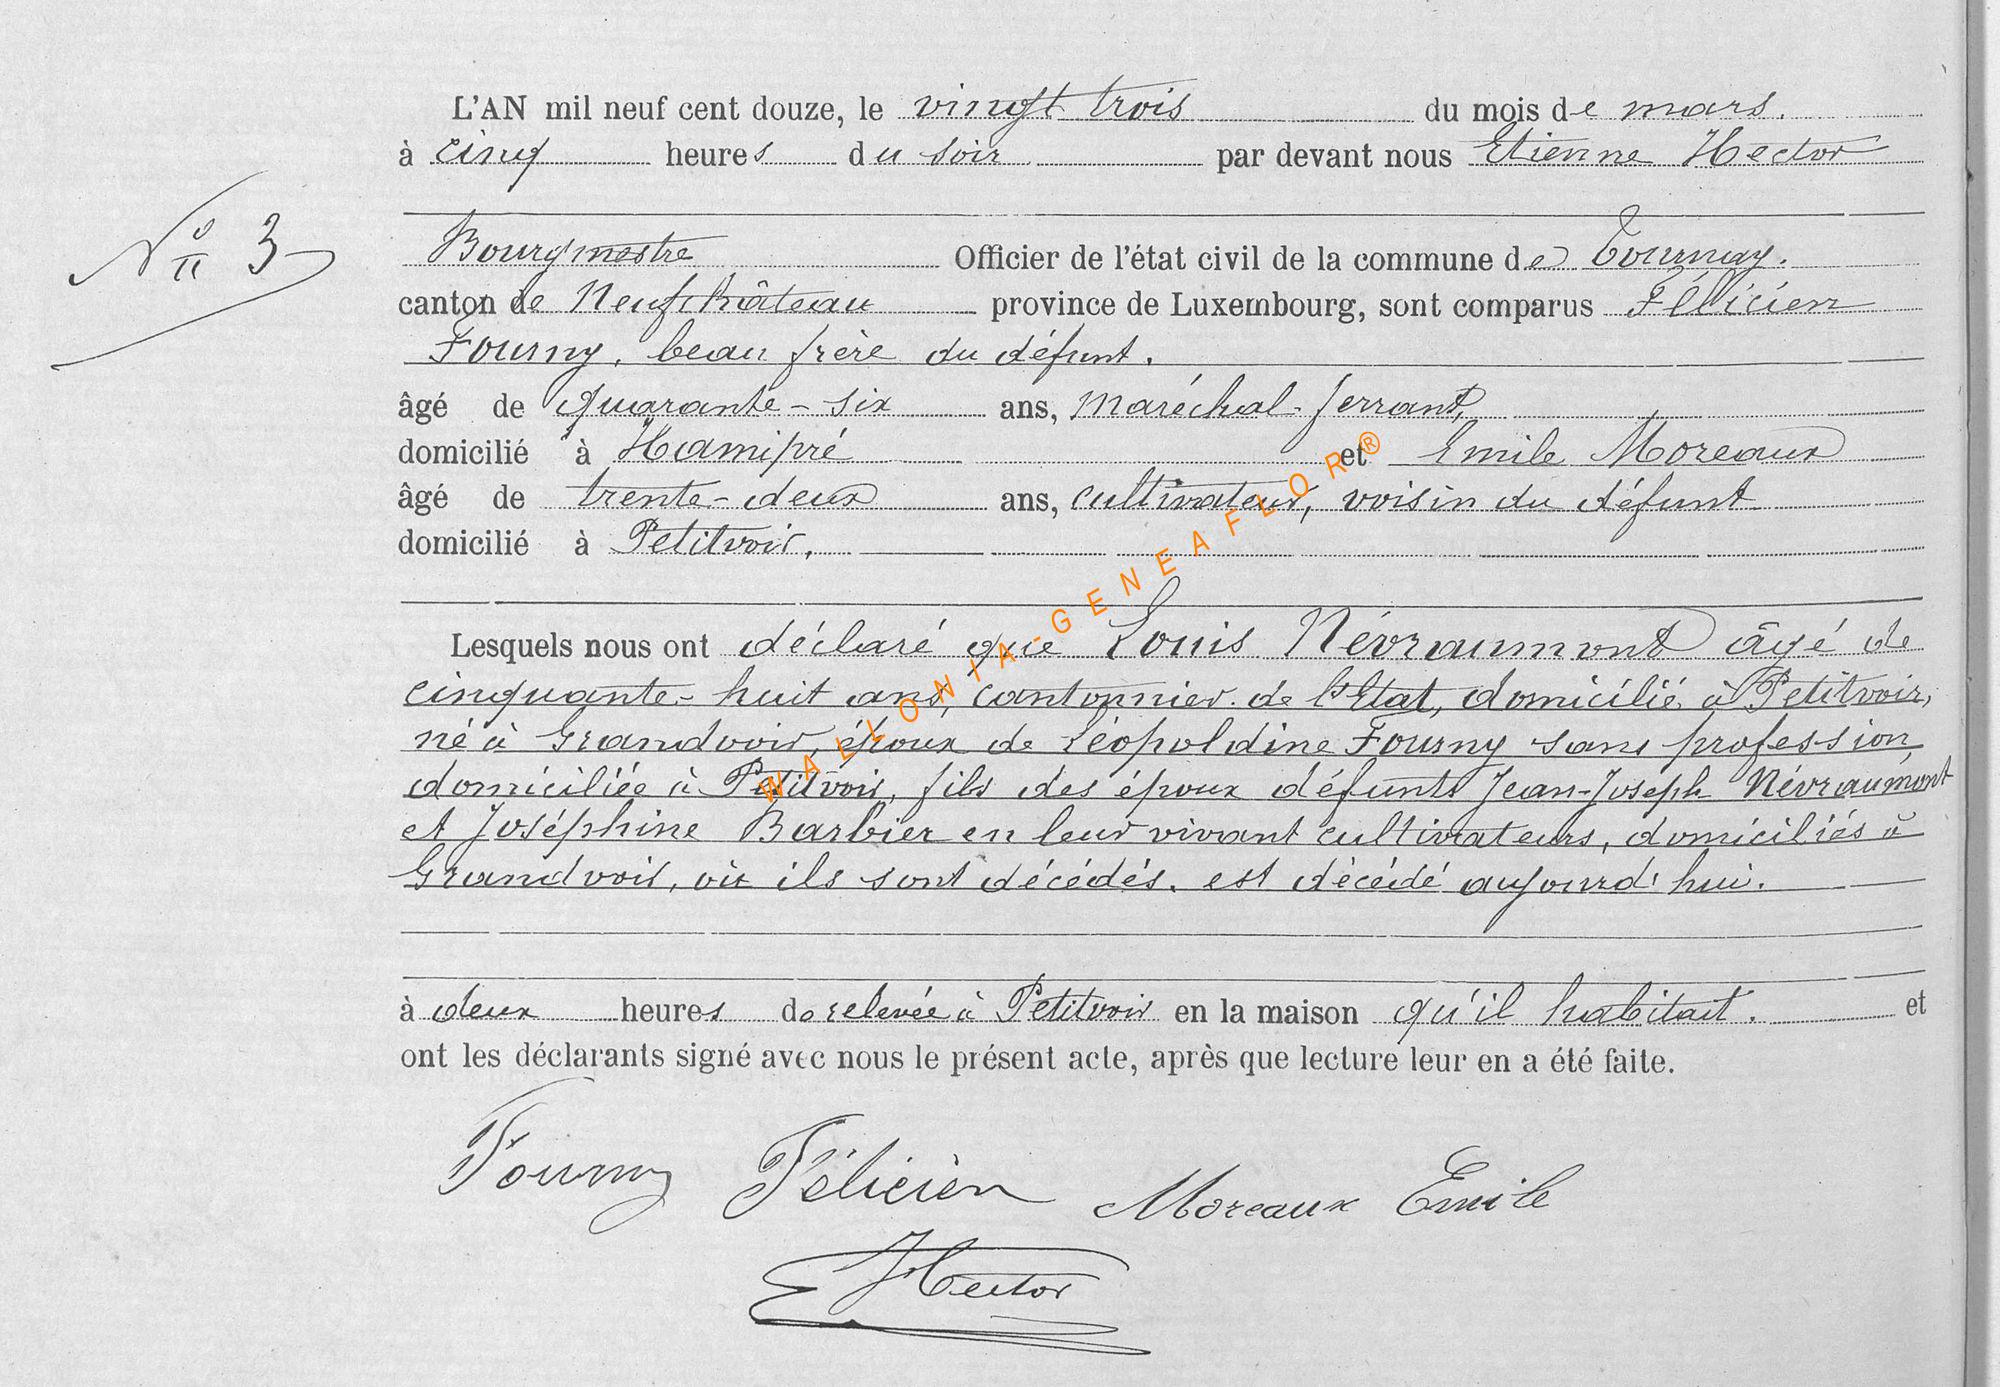 L'AN mil neuf cent douze, le vingt trois du mois de mars.
à cinq heures du soir par devant nous Etienne Hector
N° 3
Bourgmestre Officier de l'état civil de la commune de Tournay.
canton de Neufchâteau province de Luxembourg, sont comparus Félicien
Fourny, beau frère du défunt.
âgé de quarante-six ans, maréchal-ferrant,
domicilié à Hamipré et Emile Moreaux
âgé de trente-deux ans, cultivateur, voisin du défunt
domicilié à Petitvoir.
Lesquels nous ont déclaré que Louis Névraumont âgé de
cinquante-huit ans, cantonnier de l'Etat, domicilié à Petitvoir,
né à Grandvoir, époux de Léopoldine Fourny sans profession,
domiciliée à Petitvoir, fils des époux défunts Jean-Joseph Névraumont
et Joséphine Barbier en leur vivant cultivateurs, domiciliés à
Grandvoir, où ils sont décédés, est décédé aujourd'hui.
à deux heures de relevée à Petitvoir en la maison qu'il habitait. et
ont les déclarants signé avec nous le présent acte, après que lecture leur en a été faite.
Fourny Félicièn Moreaux Emile
E Hector
WALLONIA-GENEAFLOR®